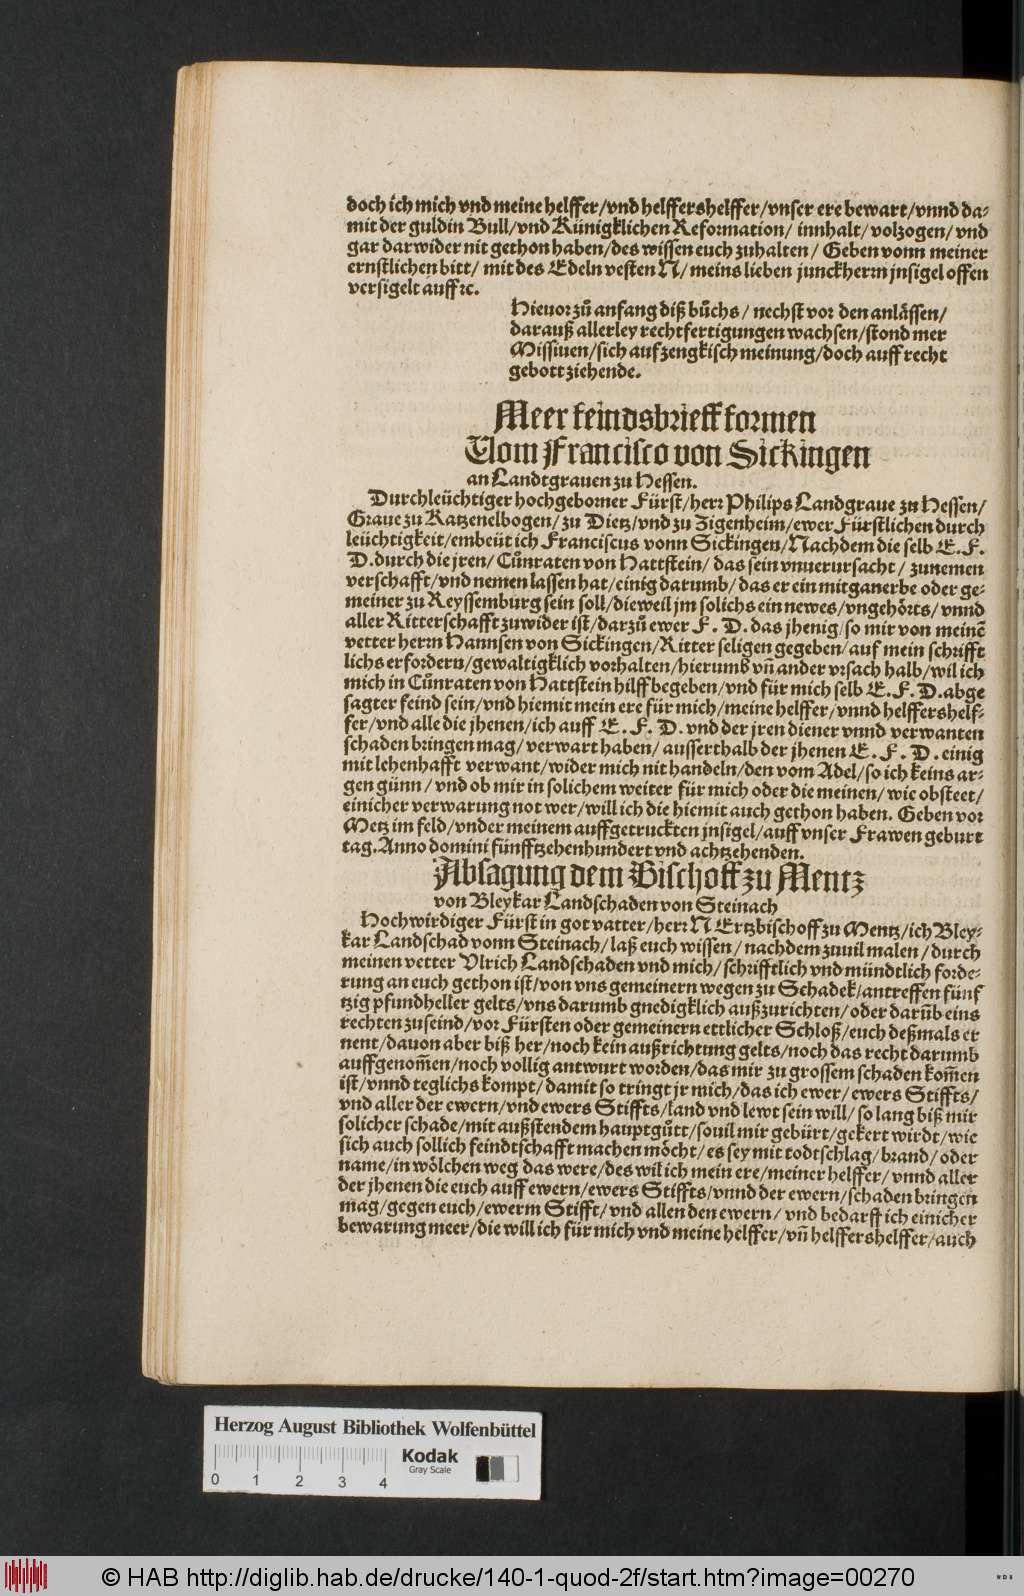 doch ich mich vnd meine helffer/vnd helffershelffer/vnser ere bewart/vnnd da-
mit der guldin Bull/vnd Künigklichen Reformation/ innhalt/ volzogen/ vnd
gar darwider nit gethon haben/des wissen euch zuhalten/ Geben vonn meiner
ernstlichen bitt/ mit des Edeln vesten N/ meins lieben junckherrn jnsigel offen
versigelt auff ꝛc.
Hieuor zů anfang diß bůchs/ nechst vor den anlässen/
darauß allerley rechtfertigungen wachsen/stond mer
Missiuen/sich auf zengkisch meinung/doch auff recht
gebott ziehende.
Meer feindsbrieff formen
Vom Francisco von Sickingen
an Landtgrauen zu Hessen.
Durchleüchtiger hochgeborner Fürst/herr Philips Landgraue zu Hessen/
Graue zu Katzenelbogen/zu Dietz/vnd zu Zigenheim/ewer Fürstlichen durch
leüchtigkeit/embeüt ich Franciscus vonn Sickingen/Nachdem die selb E. F.
D. durch die jren/ Cůnraten von Hattstein/ das sein vnuerursacht/ zunemen
verschafft/vnd nemen lassen hat/einig darumb/das er ein mitganerbe oder ge-
meiner zu Reyssemburg sein soll/dieweil jm solichs ein newes/vngehörts/vnnd
aller Ritterschafft zuwider ist/darzů ewer F. D. das jhenig/so mir von meinē
vetter herrn Hannsen von Sickingen/Ritter seligen gegeben/auf mein schrifft
lichs erfordern/gewaltigklich vorhalten/hierumb vn̄ ander vrsach halb/wil ich
mich in Cůnraten von Hattstein hilff begeben/vnd für mich selb E. F. D. abge
sagter feind sein/vnd hiemit mein ere für mich/meine helffer/vnnd helffershelf-
fer/vnd alle die jhenen/ich auff E. F. D. vnd der jren diener vnnd verwanten
schaden bringen mag/ verwart haben/ ausserthalb der jhenen E. F. D. einig
mit lehenhafft verwant/wider mich nit handeln/den vom Adel/so ich keins ar-
gen günn/ vnd ob mir in solichem weiter für mich oder die meinen/ wie obsteet/
einicher verwarung not wer/will ich die hiemit auch gethon haben. Geben vor
Metz im feld/vnder meinem auffgetruckten jnsigel/auff vnser Frawen geburt
tag. Anno domini fünfftzehenhundert vnd achtzehenden.
Absagung dem Bischoff zu Mentz
von Bleykar Landschaden von Steinach
Hochwirdiger Fürst in got vatter/herr N Ertzbischoff zu Mentz/ich Bley-
kar Landschad vonn Steinach/laß euch wissen/ nachdem zuuil malen/durch
meinen vetter Vlrich Landschaden vnd mich/schrifftlich vnd mündtlich forde-
rung an euch gethon ist/von vns gemeinern wegen zu Schadek/antreffen fünf
tzig pfundheller gelts/vns darumb gnedigklich außzurichten/oder darūb eins
rechten zuseind/vor Fürsten oder gemeinern ettlicher Schloß/euch deßmals er
nent/dauon aber biß her/noch kein außrichtung gelts/noch das recht darumb
auffgenom̄en/noch vollig antwurt worden/das mir zu grossem schaden kom̄en
ist/vnnd teglichs kompt/damit so tringt jr mich/das ich ewer/ ewers Stiffts/
vnd aller der ewern/vnd ewers Stiffts/land vnd lewt sein will/ so lang biß mir
solicher schade/mit außstendem hauptgůtt/souil mir gebürt/gekert wirdt/wie
sich auch sollich feindtschafft machen möcht/es sey mit todtschlag/brand/oder
name/in wölchen weg das were/des wil ich mein ere/meiner helffer/ vnnd aller
der jhenen die euch auff ewern/ewers Stiffts/vnnd der ewern/schaden bringen
mag/gegen euch/ewerm Stifft/ vnd allen den ewern/ vnd bedarff ich einicher
bewarung meer/die will ich für mich vnd meine helffer/vn̄ helffershelffer/auch
Herzog August Bibliothek Wolfenbüttel
Kodak
Gray Scale
0 1 2 3 4
© HAB http://diglib.hab.de/drucke/140-1-quod-2f/start.htm?image=00270